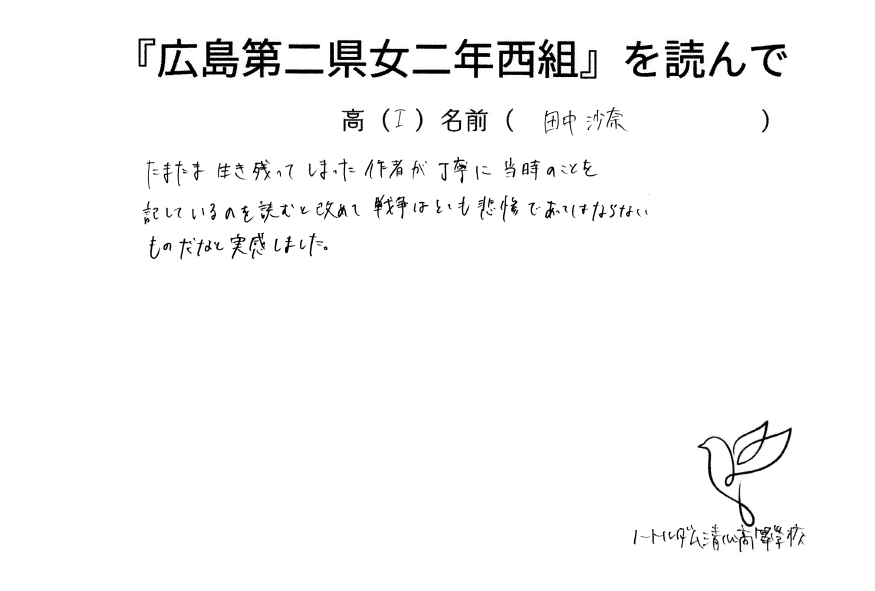 『広島第二県女二年西組』を読んで
高（I）名前（ 田中 沙奈 ）
たまたま生き残ってしまった作者が丁寧に当時のことを
記しているのを読むと改めて戦争はとても悲惨であってはならない
ものだなと実感しました。
ノートルダム清心高等学校